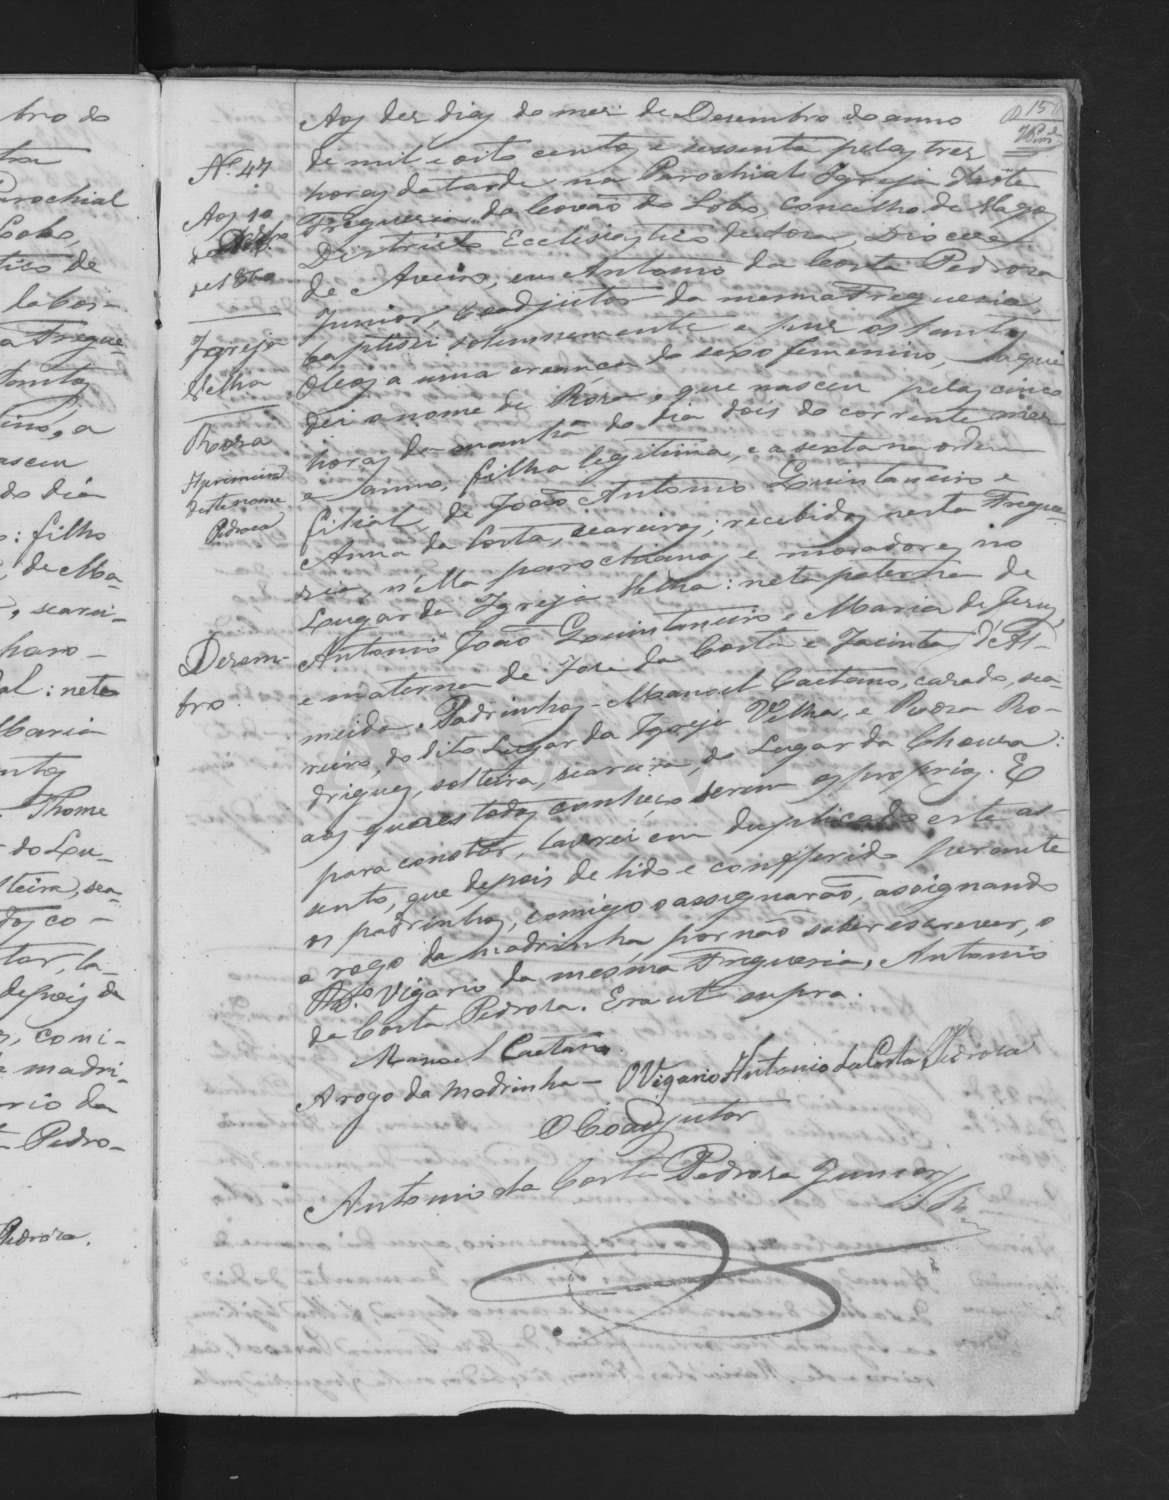 bro do
tra
Parochial
Lobo,
tico de
Freguesia
Santos
lino, a
nasceu
do dia
: filho
, de Ma-
, searei-
paro-
al : neto
Maria
Thome
do Lu-
lteira, sea-
dos co-
tar, la-
depois de
, comi-
madri-
rio da
Pedro-
Pedrosa.
15
Nº 47
Aos 10
de Dezbro
de 1860
Igreja
Velha
Rosa
A primeira
deste nome
Pedrosa
Dezem-
bro
Aos dez dias do mez de Dezembro do anno
de mil e oito centos e sessenta pelas tres
horas da tarde na Parochial Igreja d'este
Freguesia da Covão do Lobo, Concelho de Vagos
Destricto Ecclesiastico de Sosa, Diocese
de Aveiro, eu Antonio da Costa Pedrosa
Junior, Coadjutor da mesma Freguesia,
baptisei solemnemente e puz os Santos
Oleos a uma creança do sexo femenino, a qui
dei o nome de Rosa, que nasceu pelas cinco
horas da manhã do dia dois do corrente mez
e anno, filha legitima, e a sexta na ordem
filial, de João Antonio Quintaneiro e
Anna da Costa, seareiros; recebidos nesta Fregue-
sia, n'ella parochianos e moradores no
Lugar da Igreja Velha: neta paterna de
Antonio João Quintaneiro e Maria de Jesus,
e materna de Jose da Costa e Jacinta d'Al-
meida. Padrinhos - Manoel Caetano, casado, sea-
reiro, do dito Lugar da Igreja Velha, e Rosa Ro-
drigues, solteira, seareira, do Lugar da Chousa:
aos quaes todos conheço serem os proprios. E
para constar, lavrei em duplicado este as-
sento, que depois de lido e conferido perante
os padrinhos, comigo o assignarão, assignando
a rogo da madrinha, por não saber escrever, o
Rdo Vigario da mesma Freguesia, Antonio
da Costa Pedrosa. Era ut supra.
Manoel Caetano
A rogo da madrinha — O Vigario Antonio da Costa Pedrosa
O Coadjutor
Antonio da Costa Pedrosa Junior